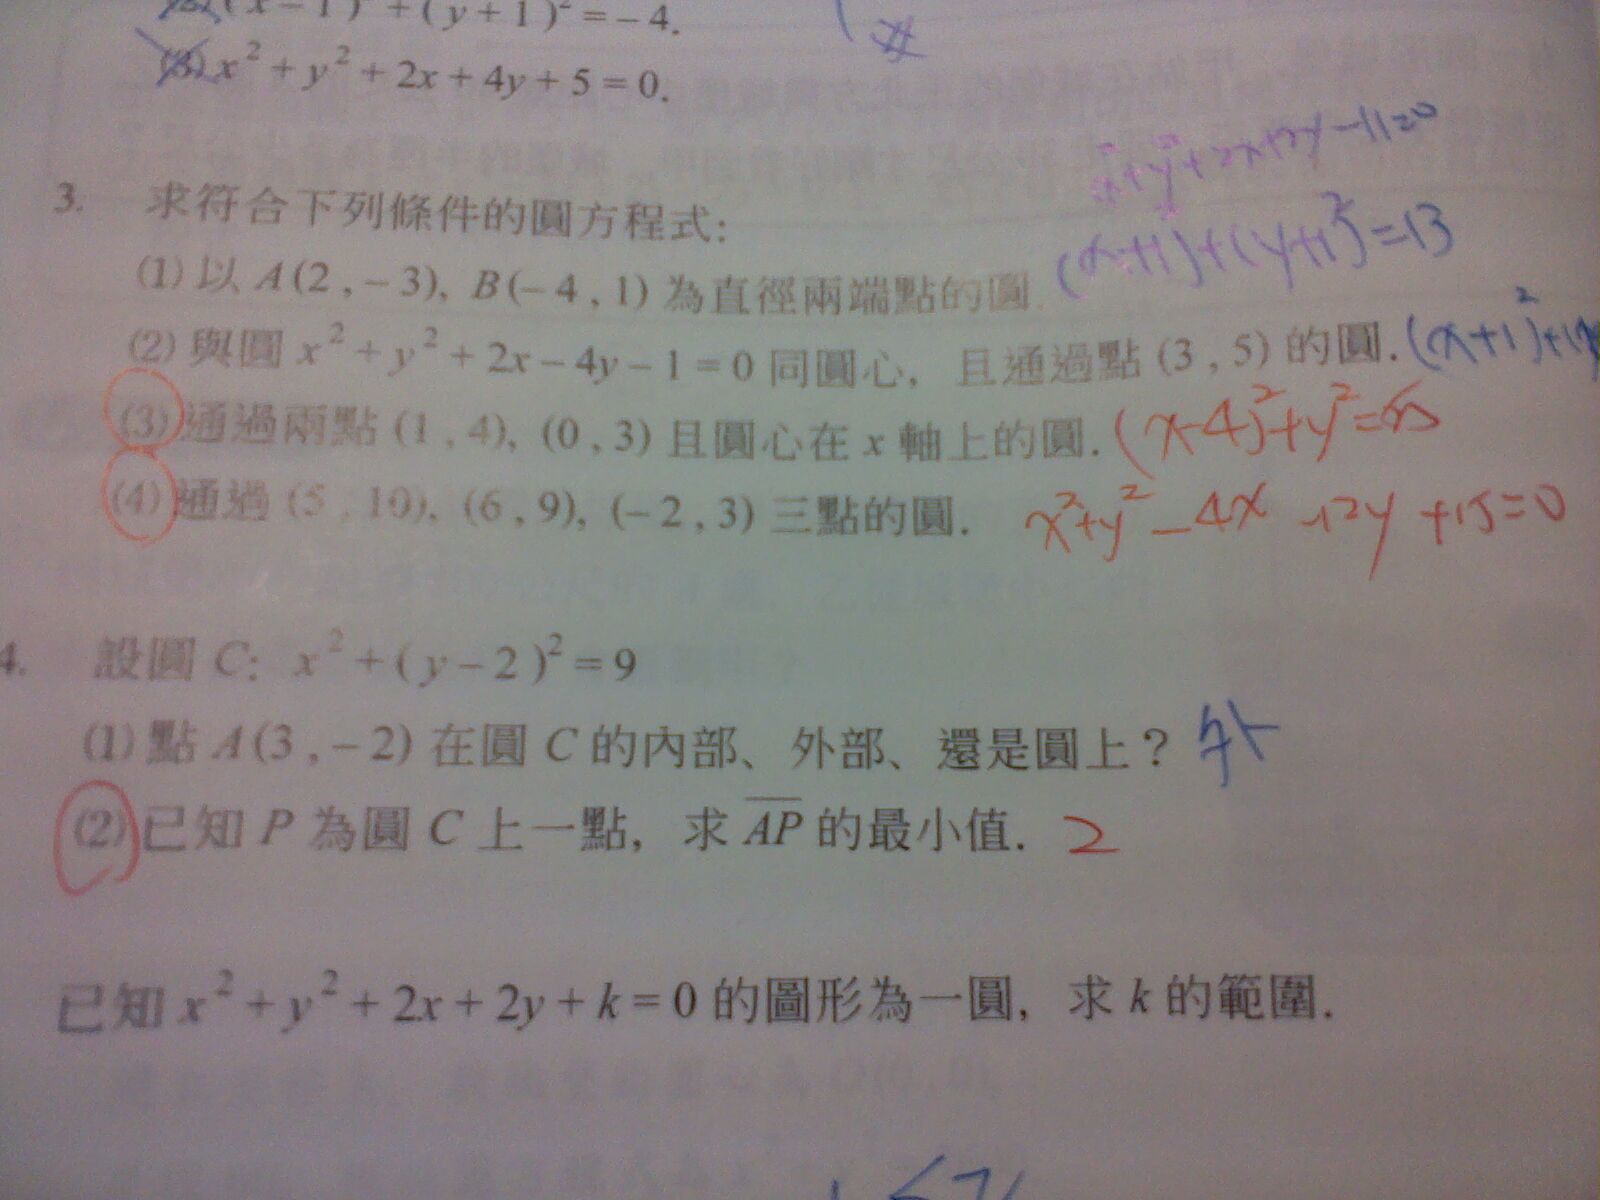 (x-1)²+(y+1)²=-4.
(3) x²+y²+2x+4y+5=0.
x²+y²+2x+2y-11=0
3. 求符合下列條件的圓方程式:
(1) 以 A(2,-3), B(-4,1) 為直徑兩端點的圓. (x+1)+(y+1)²=13
(2) 與圓 x²+y²+2x-4y-1=0 同圓心, 且通過點 (3,5) 的圓. (x+1)²+(y
(3) 通過兩點 (1,4), (0,3) 且圓心在 x 軸上的圓. (x-4)²+y²=
(4) 通過 (5,10), (6,9), (-2,3) 三點的圓. x²+y²-4x-12y+15=0
4. 設圓 C: x²+(y-2)²=9
(1) 點 A(3,-2) 在圓 C 的內部、外部、還是圓上? 外
(2) 已知 P 為圓 C 上一點, 求 A̅P̅ 的最小值. 2
已知 x²+y²+2x+2y+k=0 的圖形為一圓, 求 k 的範圍.